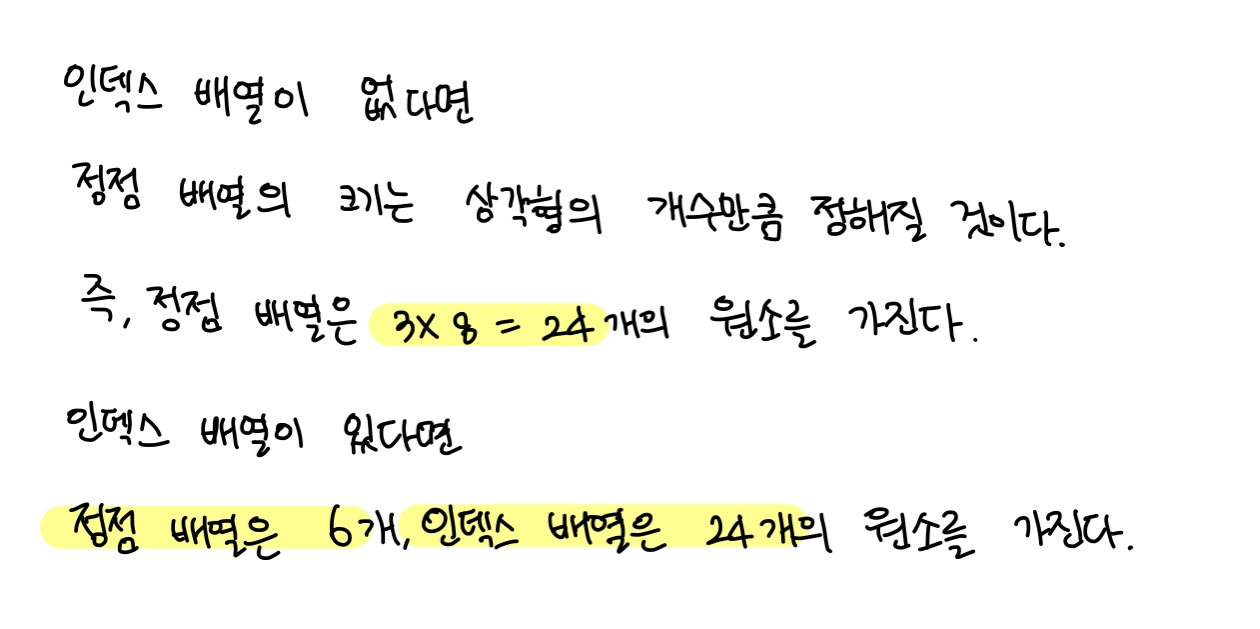 인덱스 배열이 없다면
정점 배열의 크기는 삼각형의 개수만큼 정해질 것이다.
즉, 정점 배열은 3x8 = 24개의 원소를 가진다.
인덱스 배열이 있다면
정점 배열은 6개, 인덱스 배열은 24개의 원소를 가진다.